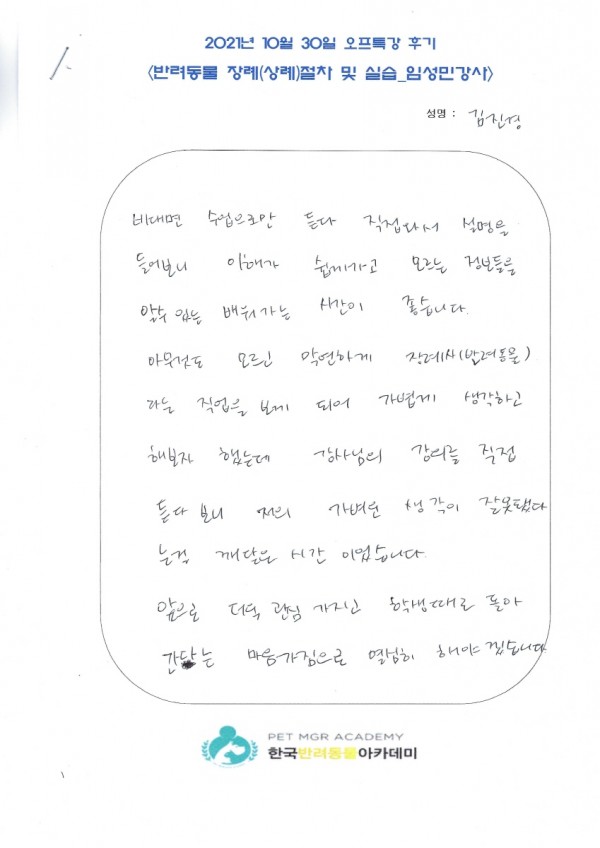 2021년 10월 30일 오프특강 후기
<반려동물 장례(상례)절차 및 실습_임성민강사>
성명 : 김진경
비대면 수업으로만 듣다 직접와서 설명을
들어보니 이해가 쉽게가고 모르는 정보들을
알수 있는 배워가는 시간이 좋습니다.
아무것도 모르고 막연하게 장례사(반려동물)
라는 직업을 보게 되어 가볍게 생각하고
해보자 했는데 강사님의 강의를 직접
듣다 보니 저의 가벼운 생각이 잘못됐다
는걸 깨달은 시간 이었습니다.
앞으로 더욱 관심 가지고 학생때로 돌아
간다는 마음가짐으로 열심히 해야겠습니다
PET MGR ACADEMY
한국반려동물아카데미